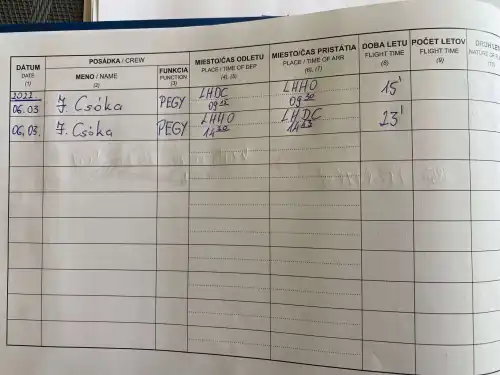 DÁTUM DATE (1) POSÁDKA / CREW MIESTO/ČAS ODLETU PLACE / TIME OF DEP (4), (5) MIESTO/ČAS PRISTÁTIA PLACE / TIME OF ARR (6), (7) DOBA LETU FLIGHT TIME (8) POČET LETOV FLIGHT TIME (9)
MENO / NAME (2) FUNKCIA FUNCTION (3)
2022
06.03 J. Csóka PEGY LHDC 09 15 LHHO 09 30 15'
06.03. J. Csóka PEGY LHHO 14 30 LHDC 14 53 23'